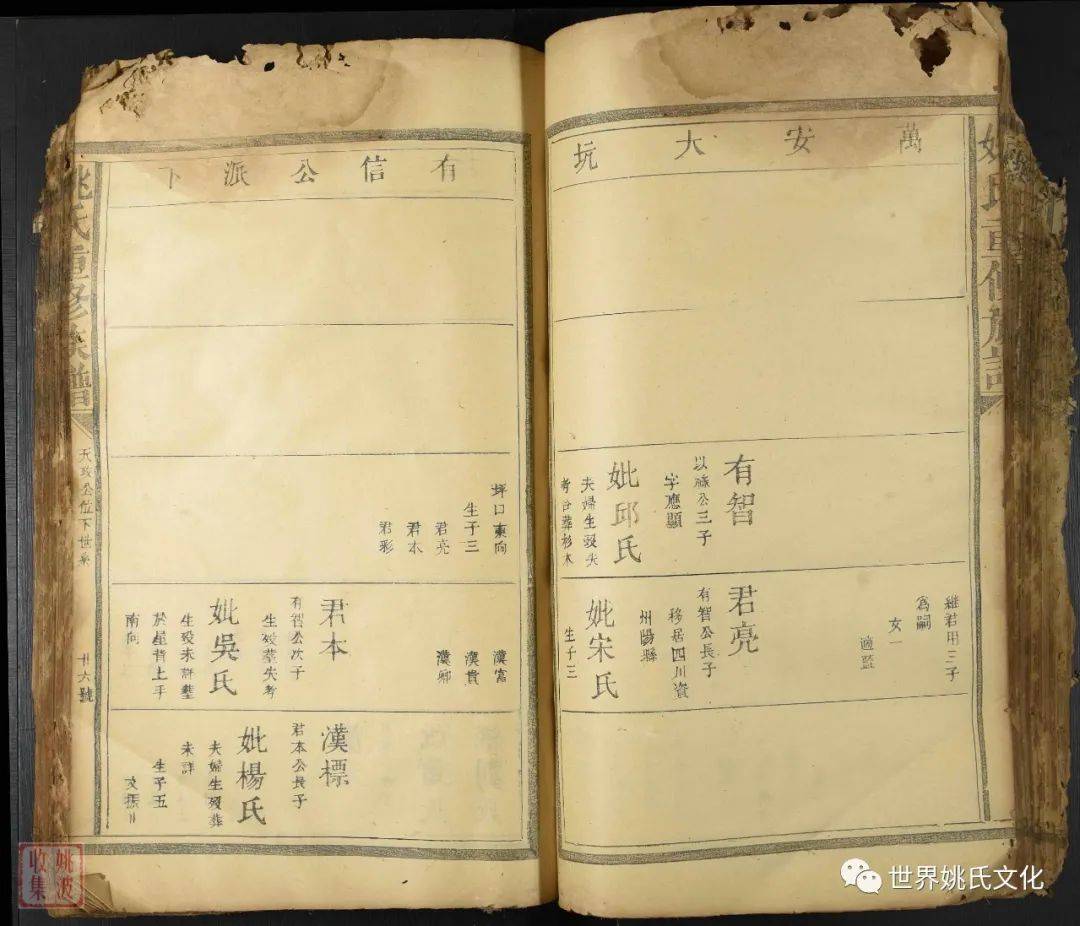 姚氏重修族譜
萬安大坑
有智
以祿公三子
字應顯
妣邱氏
夫婦生歿失
考合葬杉木
繼君用三子
為嗣
女一
適藍
君亮
有智公長子
移居四川資
州陽縣
妣宋氏
生子三
有信公派下
坪口東向
生子三
君亮
君本
君彩
漢富
漢貴
漢卿
君本
有智公次子
生歿葬失考
妣吳氏
生歿未詳葬
於屋背上手
南向
漢標
君本公長子
妣楊氏
夫婦生歿葬
未詳
生子五
文振
姚氏重修族譜
公位下世系
廿六號
姚波
收集
世界姚氏文化